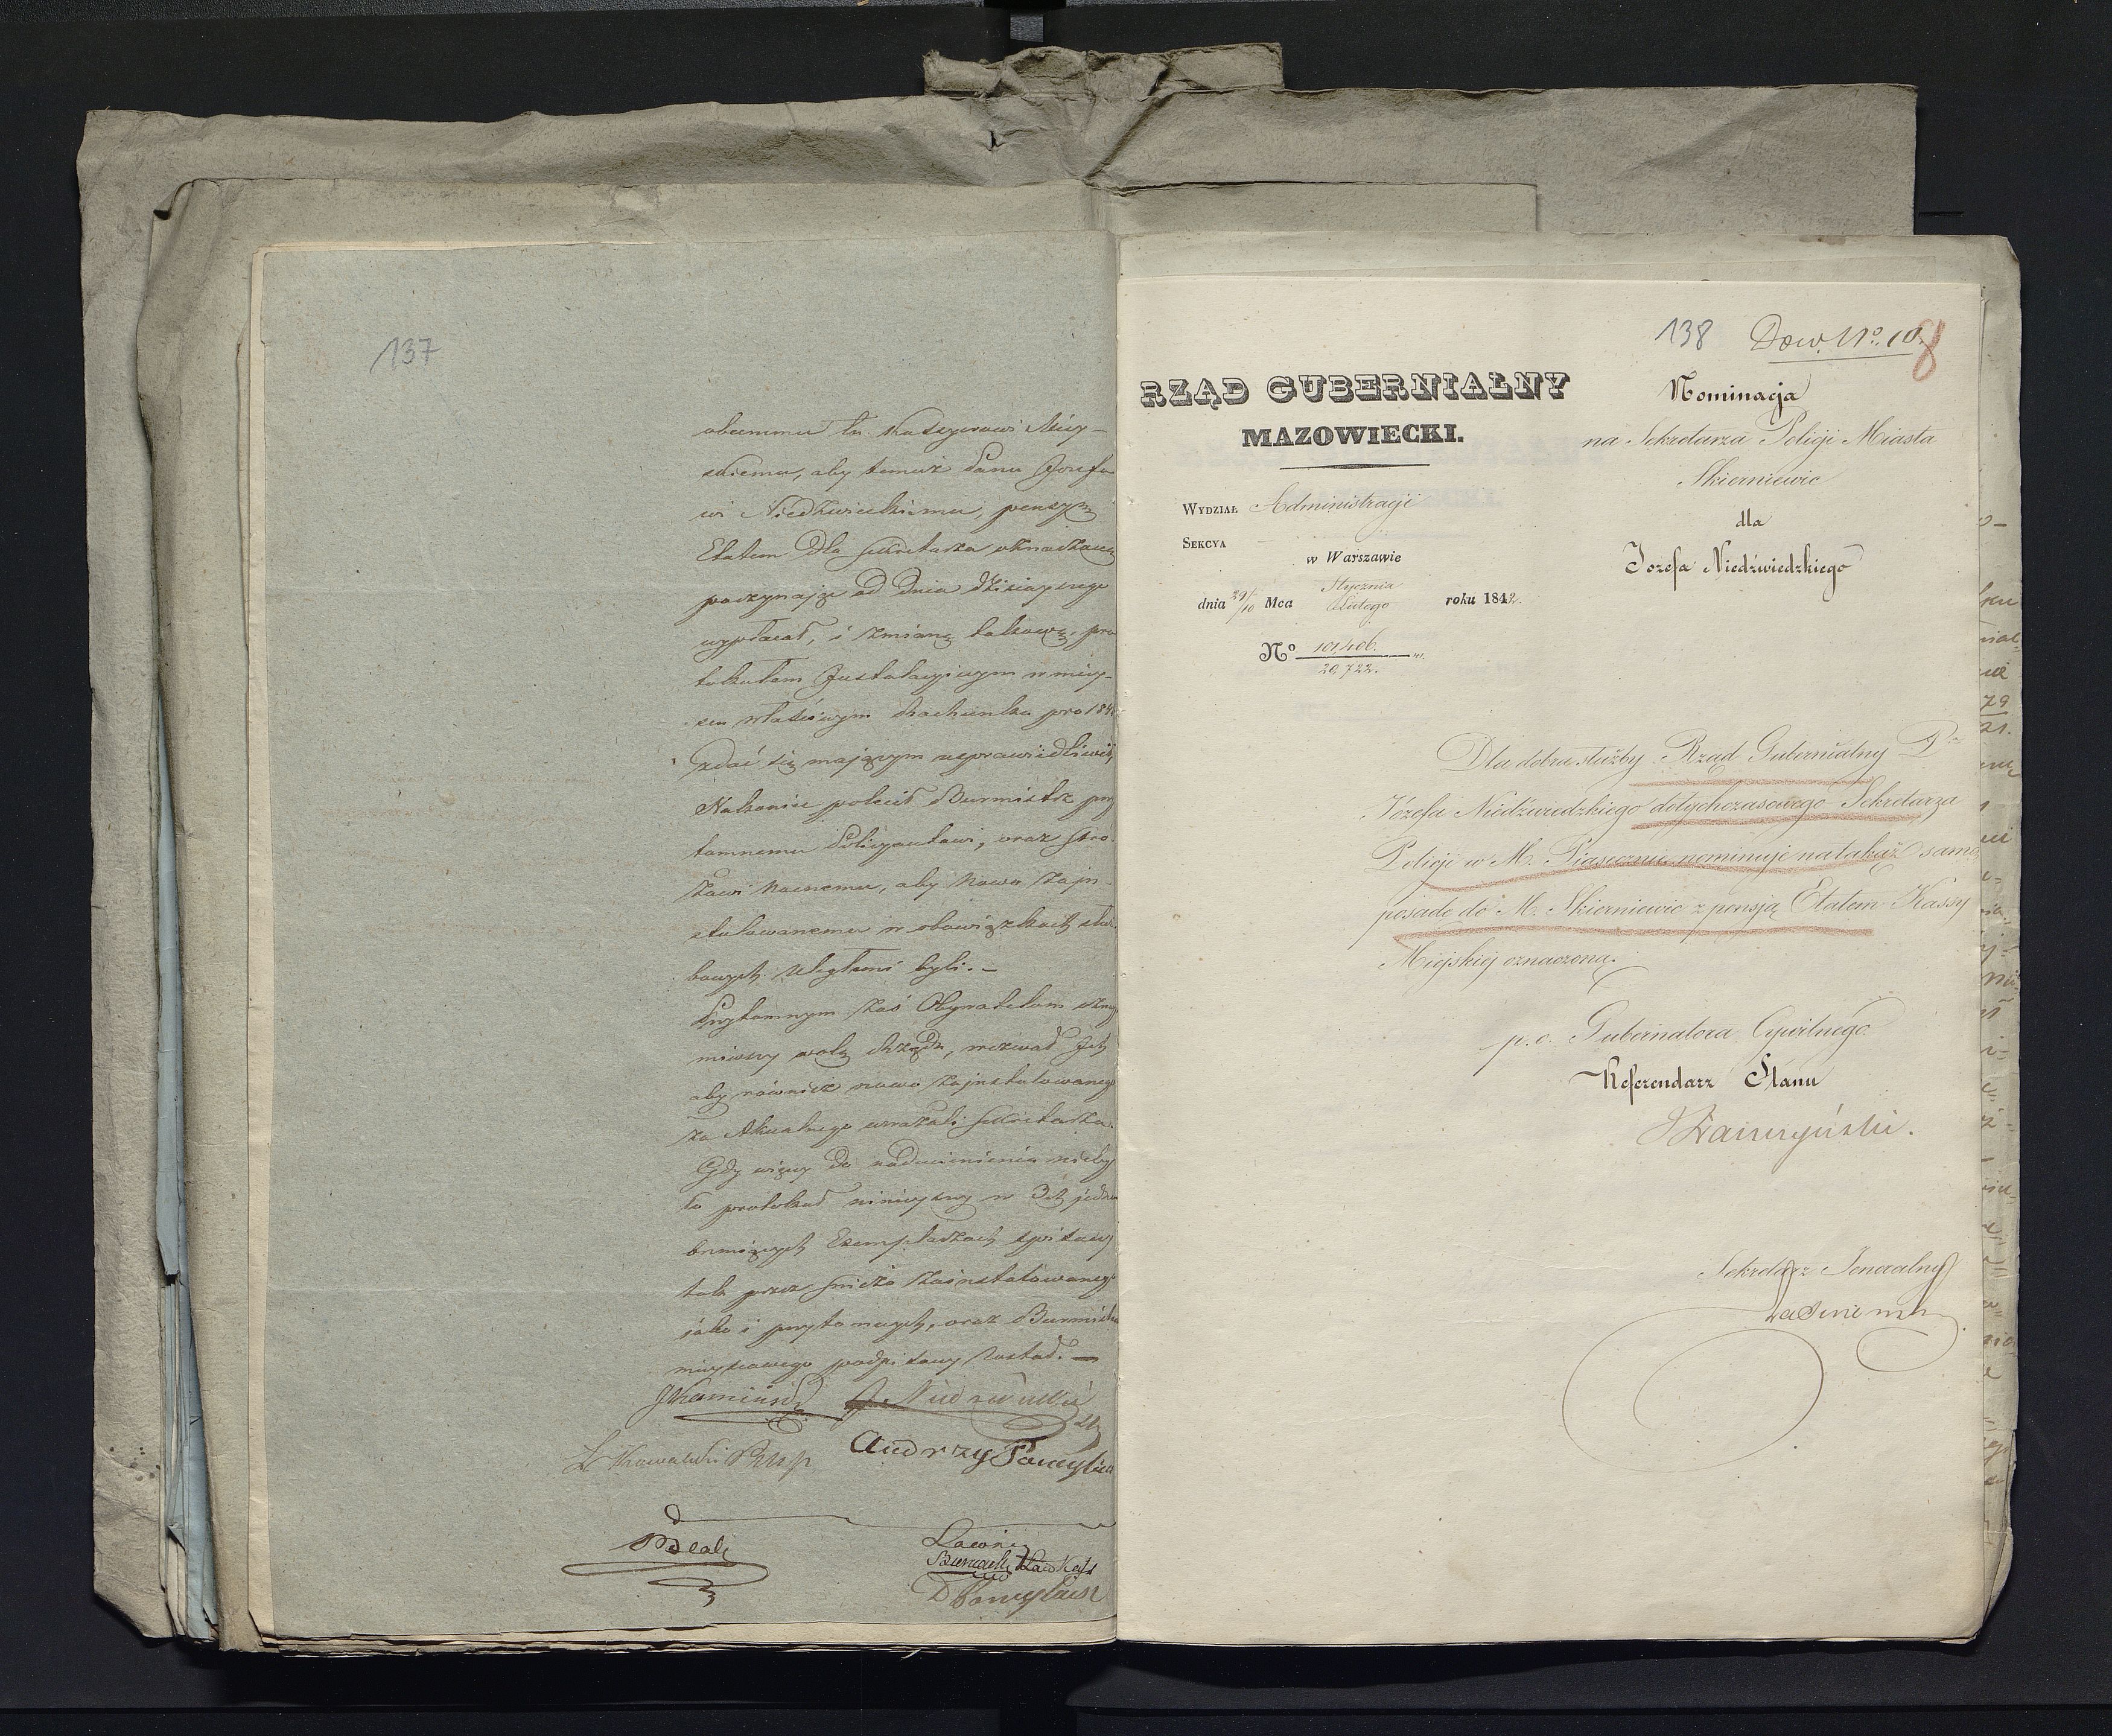 137
obecnemu tu Kassyerowi Miey-
skiemu, aby temuż Panu Jozefo
wi Niedzwieckiemu, pensyą
Etatem dla Sekretarza oznaczoną
poczynając od dnia dzisieyszego
wypłacał, i zmianę takową, pro
tokułem Instalacyinym w miey-
scu właściwym Rachunku pro 184
zdać się mającym usprawiedliwił,
Nakoniec polecił Burmistrz przy
tomnemu Policyantowi, oraz Stro-
żowi nocnemu, aby nowo zajn-
stalowanemu w obowiązkach służ-
bowych uległemi byli. —
Przytomnym zaś Obywatelom
wolą Rządu, wezwał Ich
aby również nowo zajnstalowanego
za Aktualnego uważali Sekretarza.
Gdy więcy do nadmienienia niebył
to protokuł ninieyszy w 3ch jedno
brmiących Exemplarzach spisany
tak przez śwież zainstalowanego
jako i przytomnych, oraz Burmistrza
mieyscowego podpisany został. —
JKamiński
Andrzy
Ławnik
138 Dow. No. 10.
8
RZĄD GUBERNIALNY
MAZOWIECKI.
WYDZIAŁ Administracji
SEKCYA
w Warszawie
dnia 29/10 Mca Stycznia
Lutego roku 1842.
No 101,406.
20,722.
Nominacja
na Sekretarza Policji Miasta
Skierniewic
dla
Jozefa Niedźwiedzkiego
Dla dobra służby Rząd Gubernialny P.
Józefa Niedźwiedzkiego dotychczasowego Sekretarza
Policji w M. Piasecznie nominuje na takąż samą
posadę do M. Skierniewic z pensją Etatem Kassy
Miejskiej oznaczoną.
p. o. Gubernatora Cywilnego
Referendarz Stanu
Sekretarz Jeneralny